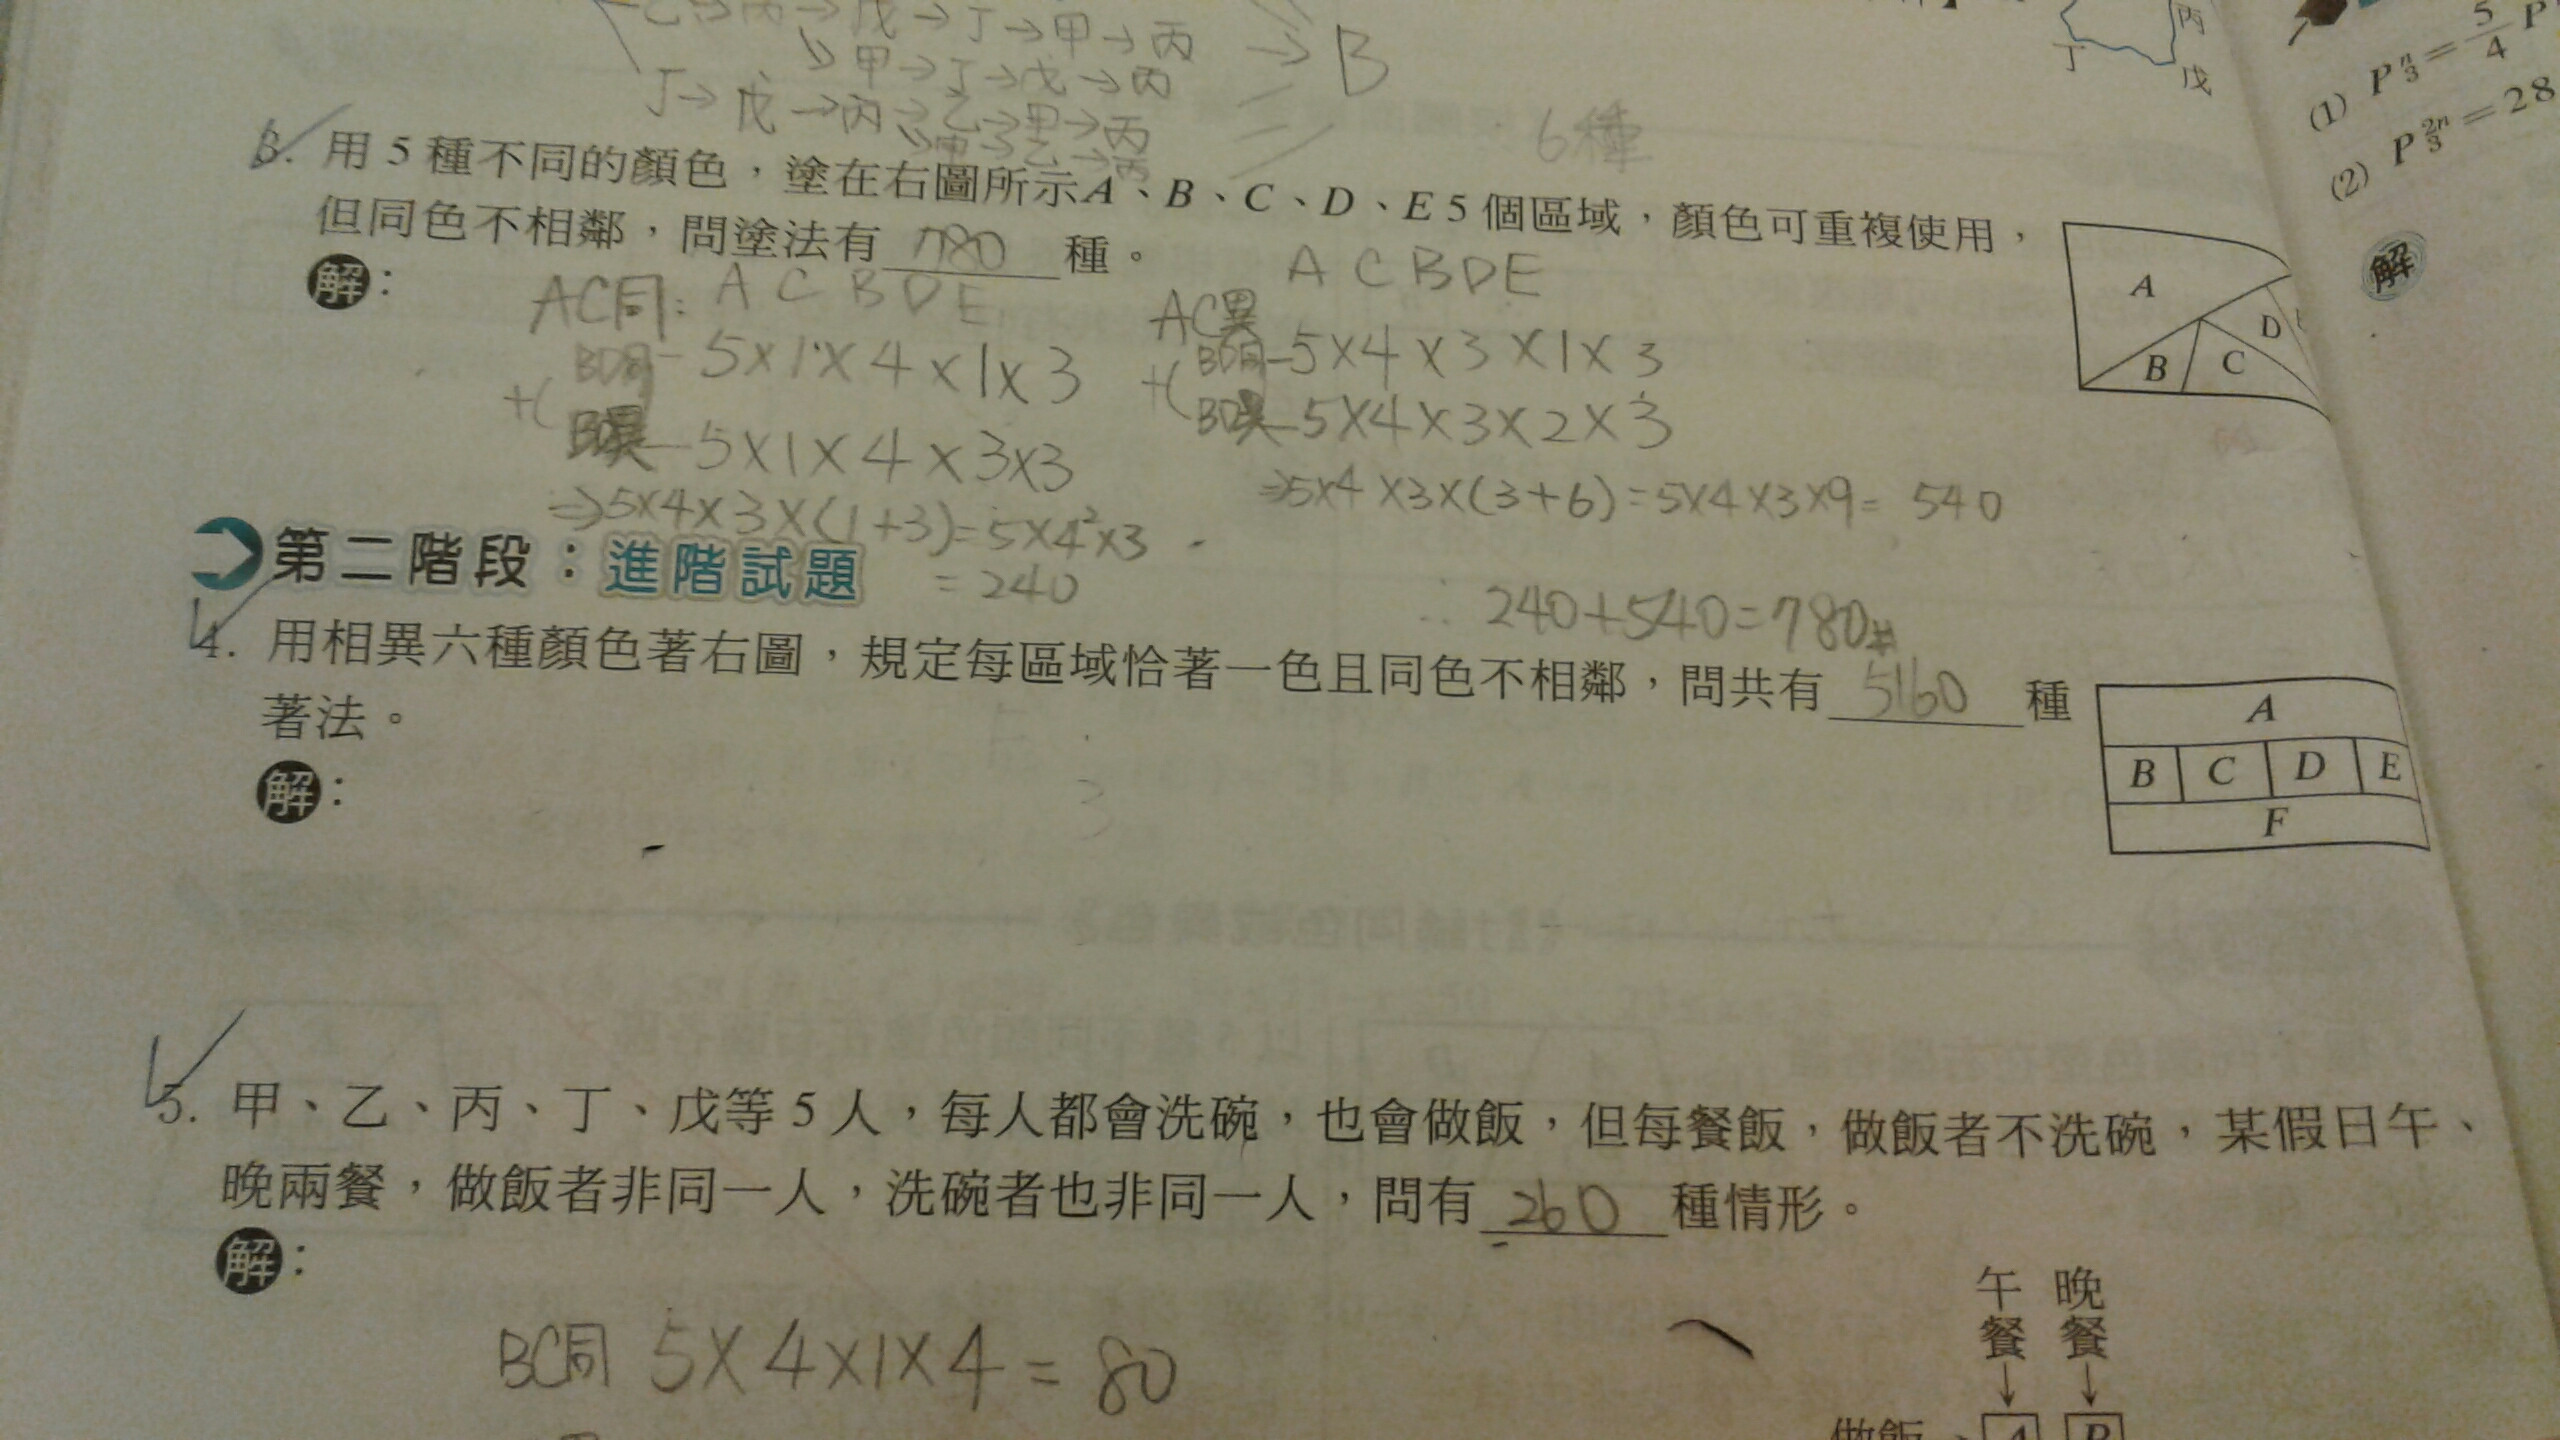 乙→丙→戊→丁→甲→丙
→甲→丁→戊→丙
→B
丁→戊→丙→乙→甲→丙
→甲→乙→丙
6種
丙
丁
戊
3. 用5種不同的顏色，塗在右圖所示A、B、C、D、E 5個區域，顏色可重複使用，
但同色不相鄰，問塗法有 780 種。
解：
AC同: A C B D E
BD同-5×1×4×1×3
+(
BD異-5×1×4×3×3
⇒5×4×3×(1+3)=5×4²×3
=240
A C B D E
AC異
BD同-5×4×3×1×3
+(
BD異-5×4×3×2×3
⇒5×4×3×(3+6)=5×4×3×9=540
∴240+540=780#
A
B
C
D
第二階段：進階試題
4. 用相異六種顏色著右圖，規定每區域恰著一色且同色不相鄰，問共有 5160 種
著法。
解：
A
B C D E
F
5. 甲、乙、丙、丁、戊等5人，每人都會洗碗，也會做飯，但每餐飯，做飯者不洗碗，某假日午、
晚兩餐，做飯者非同一人，洗碗者也非同一人，問有 260 種情形。
解：
BC同 5×4×1×4=80
午餐 晚餐
↓ ↓
做飯→ A B
(1) P n 3 = 5/4 P
(2) P 2n 3 = 28
解